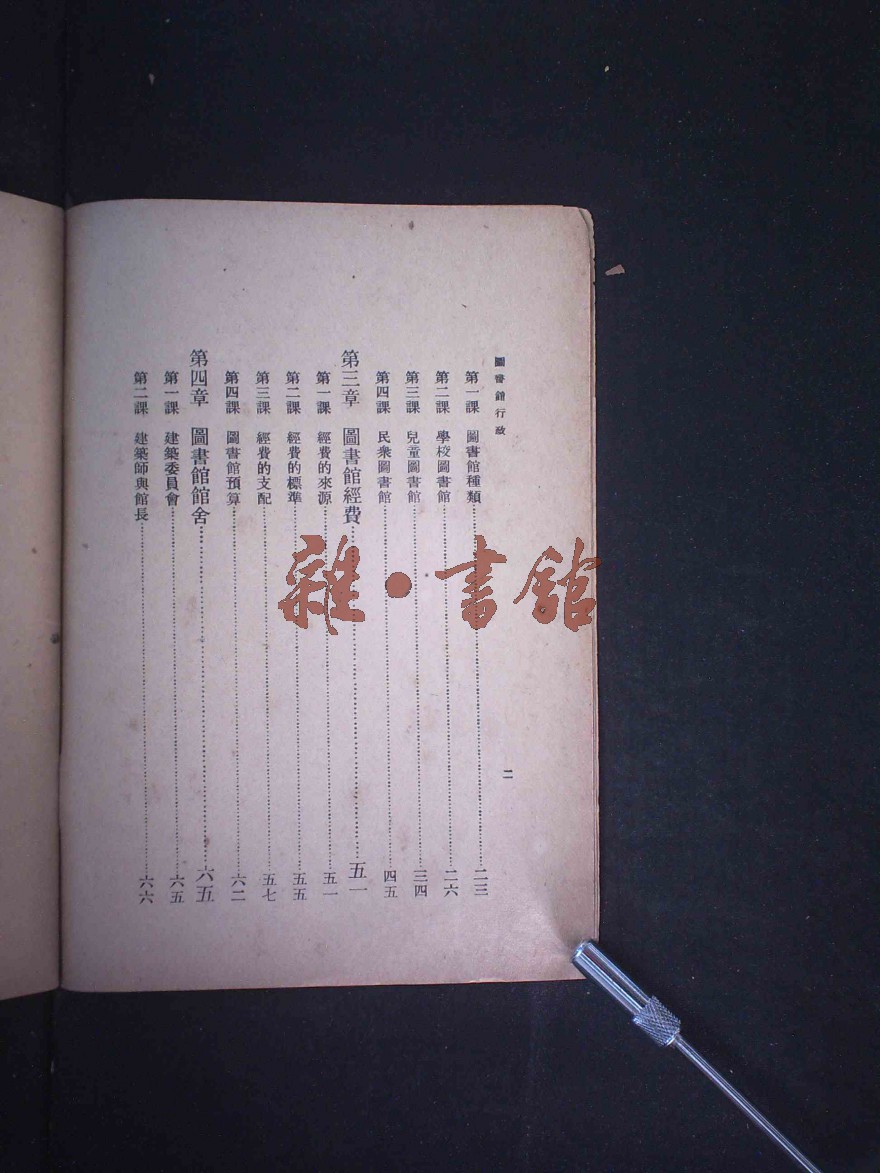 圖書館行政
二
第一課　圖書館種類……二三
第二課　學校圖書館……二六
第三課　兒童圖書館……三四
第四課　民衆圖書館……四五
第三章　圖書館經費……五一
第一課　經費的來源……五一
第二課　經費的標準……五五
第三課　經費的支配……五七
第四課　圖書館預算……六二
第四章　圖書館館舍……六五
第一課　建築委員會……六五
第二課　建築師與館長……六六
雜・書館